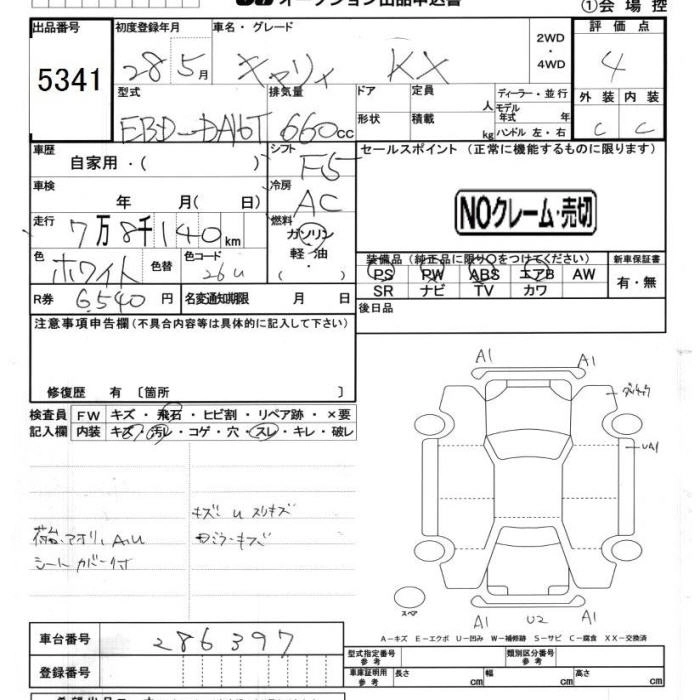 オークション出品申込書
①会場控
出品番号 初度登録年月 車名・グレード 評価点
5341 28 5月 キャリィ KX 2WD ・ 4WD 4
型式 排気量 ドア 定員 人 ディーラー・並行 外装 内装
EBD-DA16T 660cc 形状 積載 kg モデル年式 年 ハンドル 左・右 C C
車歴 シフト セールスポイント (正常に機能するものに限ります)
自家用・( ) F5
車検 冷房
年 月( 日) AC
NOクレーム・売切
走行 燃料
7万8千140km ガソリン
色 色替 色コード 軽油
ホワイト 26U ・( )
装備品 (純正品に限り○をつけてください) 新車保証書
PS PW ABS エアB AW 有・無
SR ナビ TV カワ
R券 6,540円 名変通知期限 月 日
後日品
注意事項申告欄(不具合内容等は具体的に記入して下さい)
修復歴 有 〔箇所 〕
検査員 FW キズ・飛石・ヒビ割・リペア跡・×要
記入欄 内装 キズ・汚レ・コゲ・穴・スレ・キレ・破レ
A1 A1
UA1
キズ U スリキズ
荷台、アオリ、A、U
シートカバー付
スペア
A1 U2 A1
A-キズ E-エクボ U-凹み W-補修跡 S-サビ C-腐食 XX-交換済
車台番号 286397
型式指定番号 参考 類別区分番号 参考
登録番号 車庫証明用 参考 長さ cm 幅 cm 高さ cm